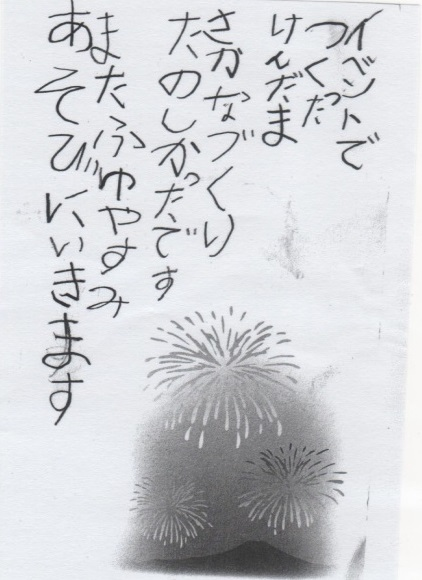 イベントで
つくった
けんだま
さかなづくり
たのしかったです
またふゆやすみ
あそびにいきます